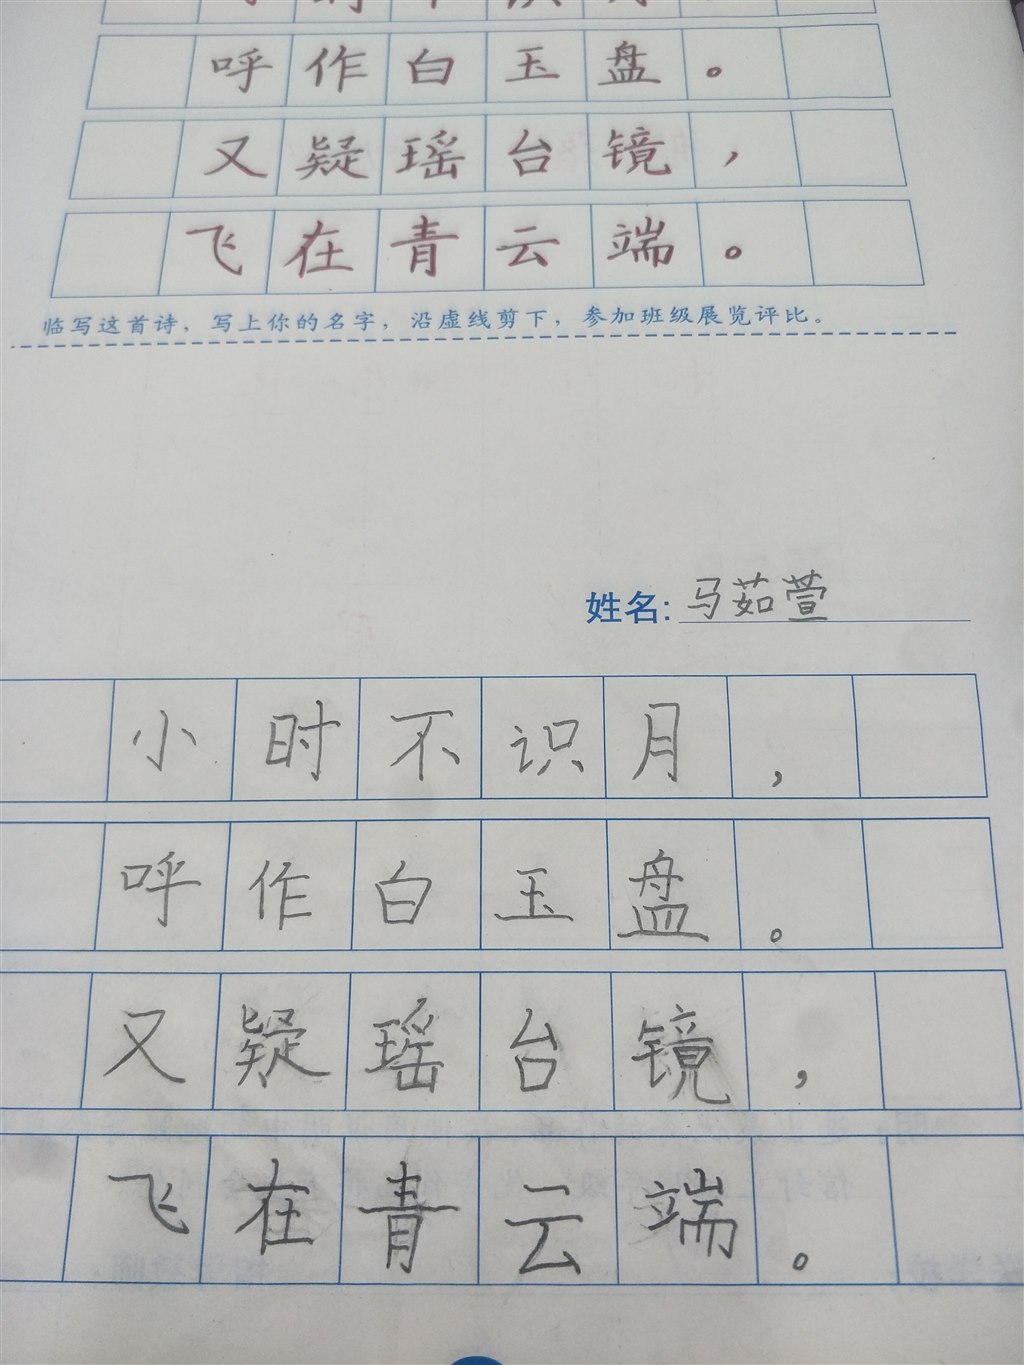 呼作白玉盘。
又疑瑶台镜，
飞在青云端。
临写这首诗，写上你的名字，沿虚线剪下，参加班级展览评比。
姓名:马茹萱
小时不识月，
呼作白玉盘。
又疑瑶台镜，
飞在青云端。